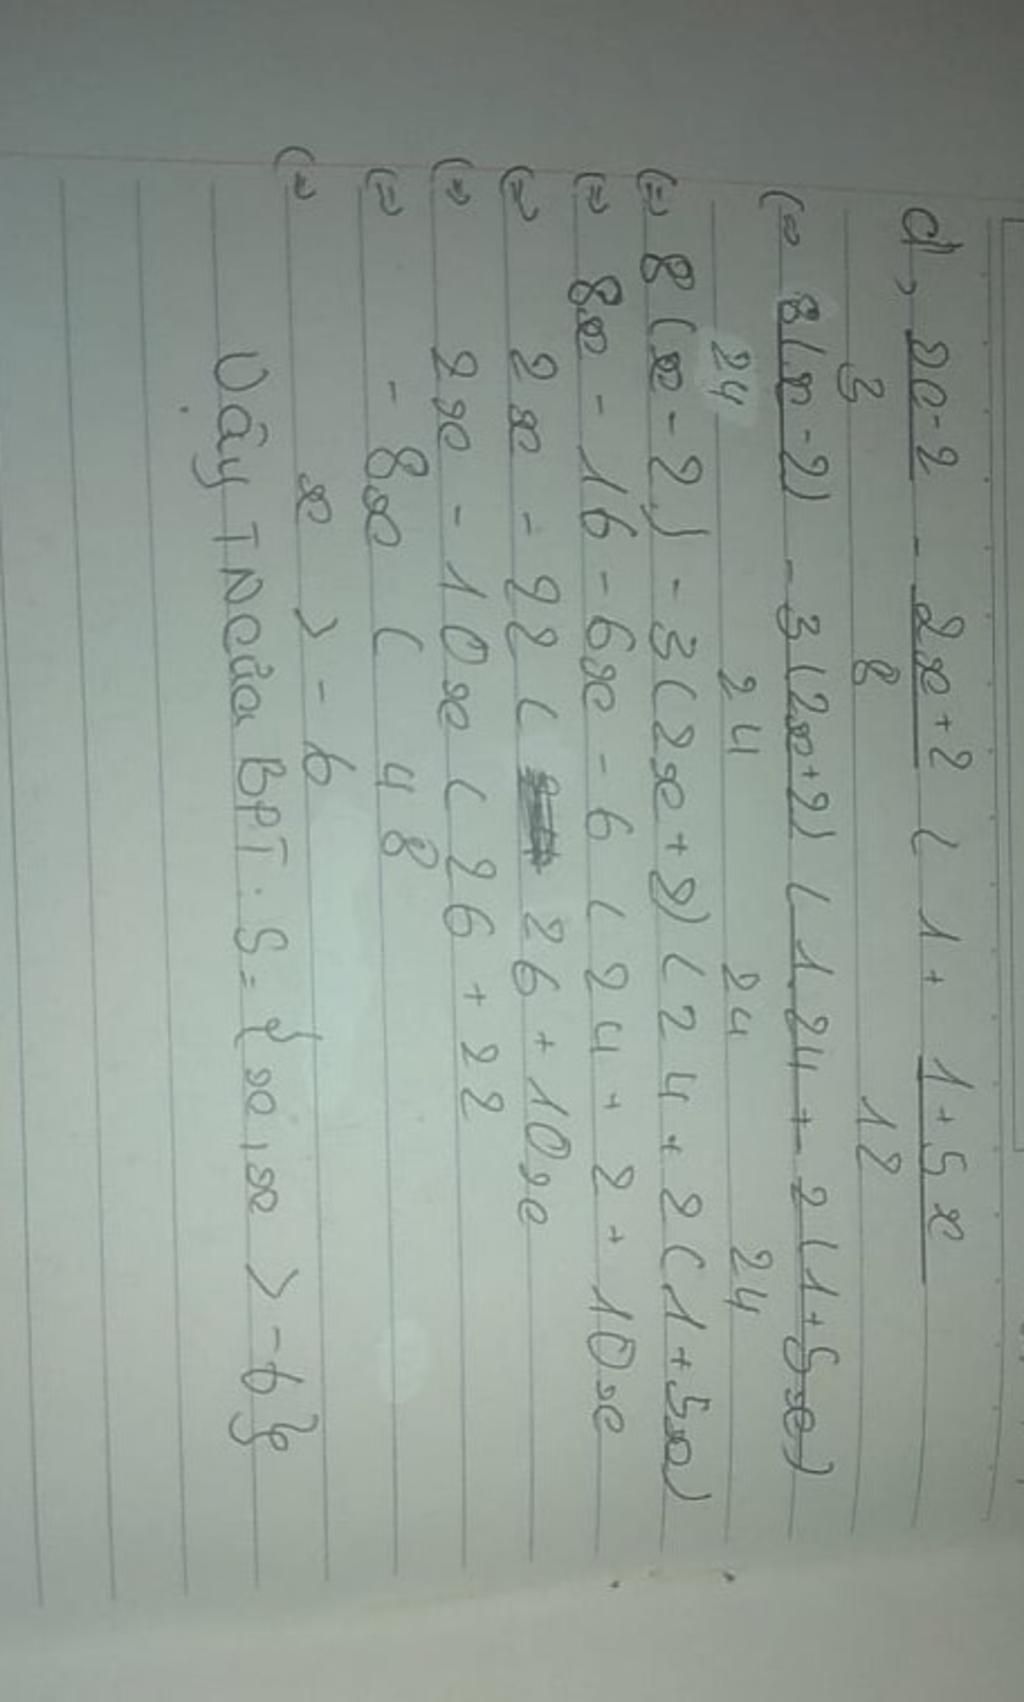 d, x-2 - 2x+2 < 1 + 1+5x
3 8 12
(=) 8(x-2) - 3(2x+2) < 1.24 + 2(1+5x)
24 24 24 24
(=) 8(x-2) - 3(2x+2) < 24 + 2(1+5x)
(=) 8x - 16 - 6x - 6 < 24 + 2 + 10x
(=) 2x - 22 < 26 + 10x
(=) 2x - 10x < 26 + 22
(=) - 8x < 48
(=) x > -6
Vậy TN của BPT: S = {x, x > -6}